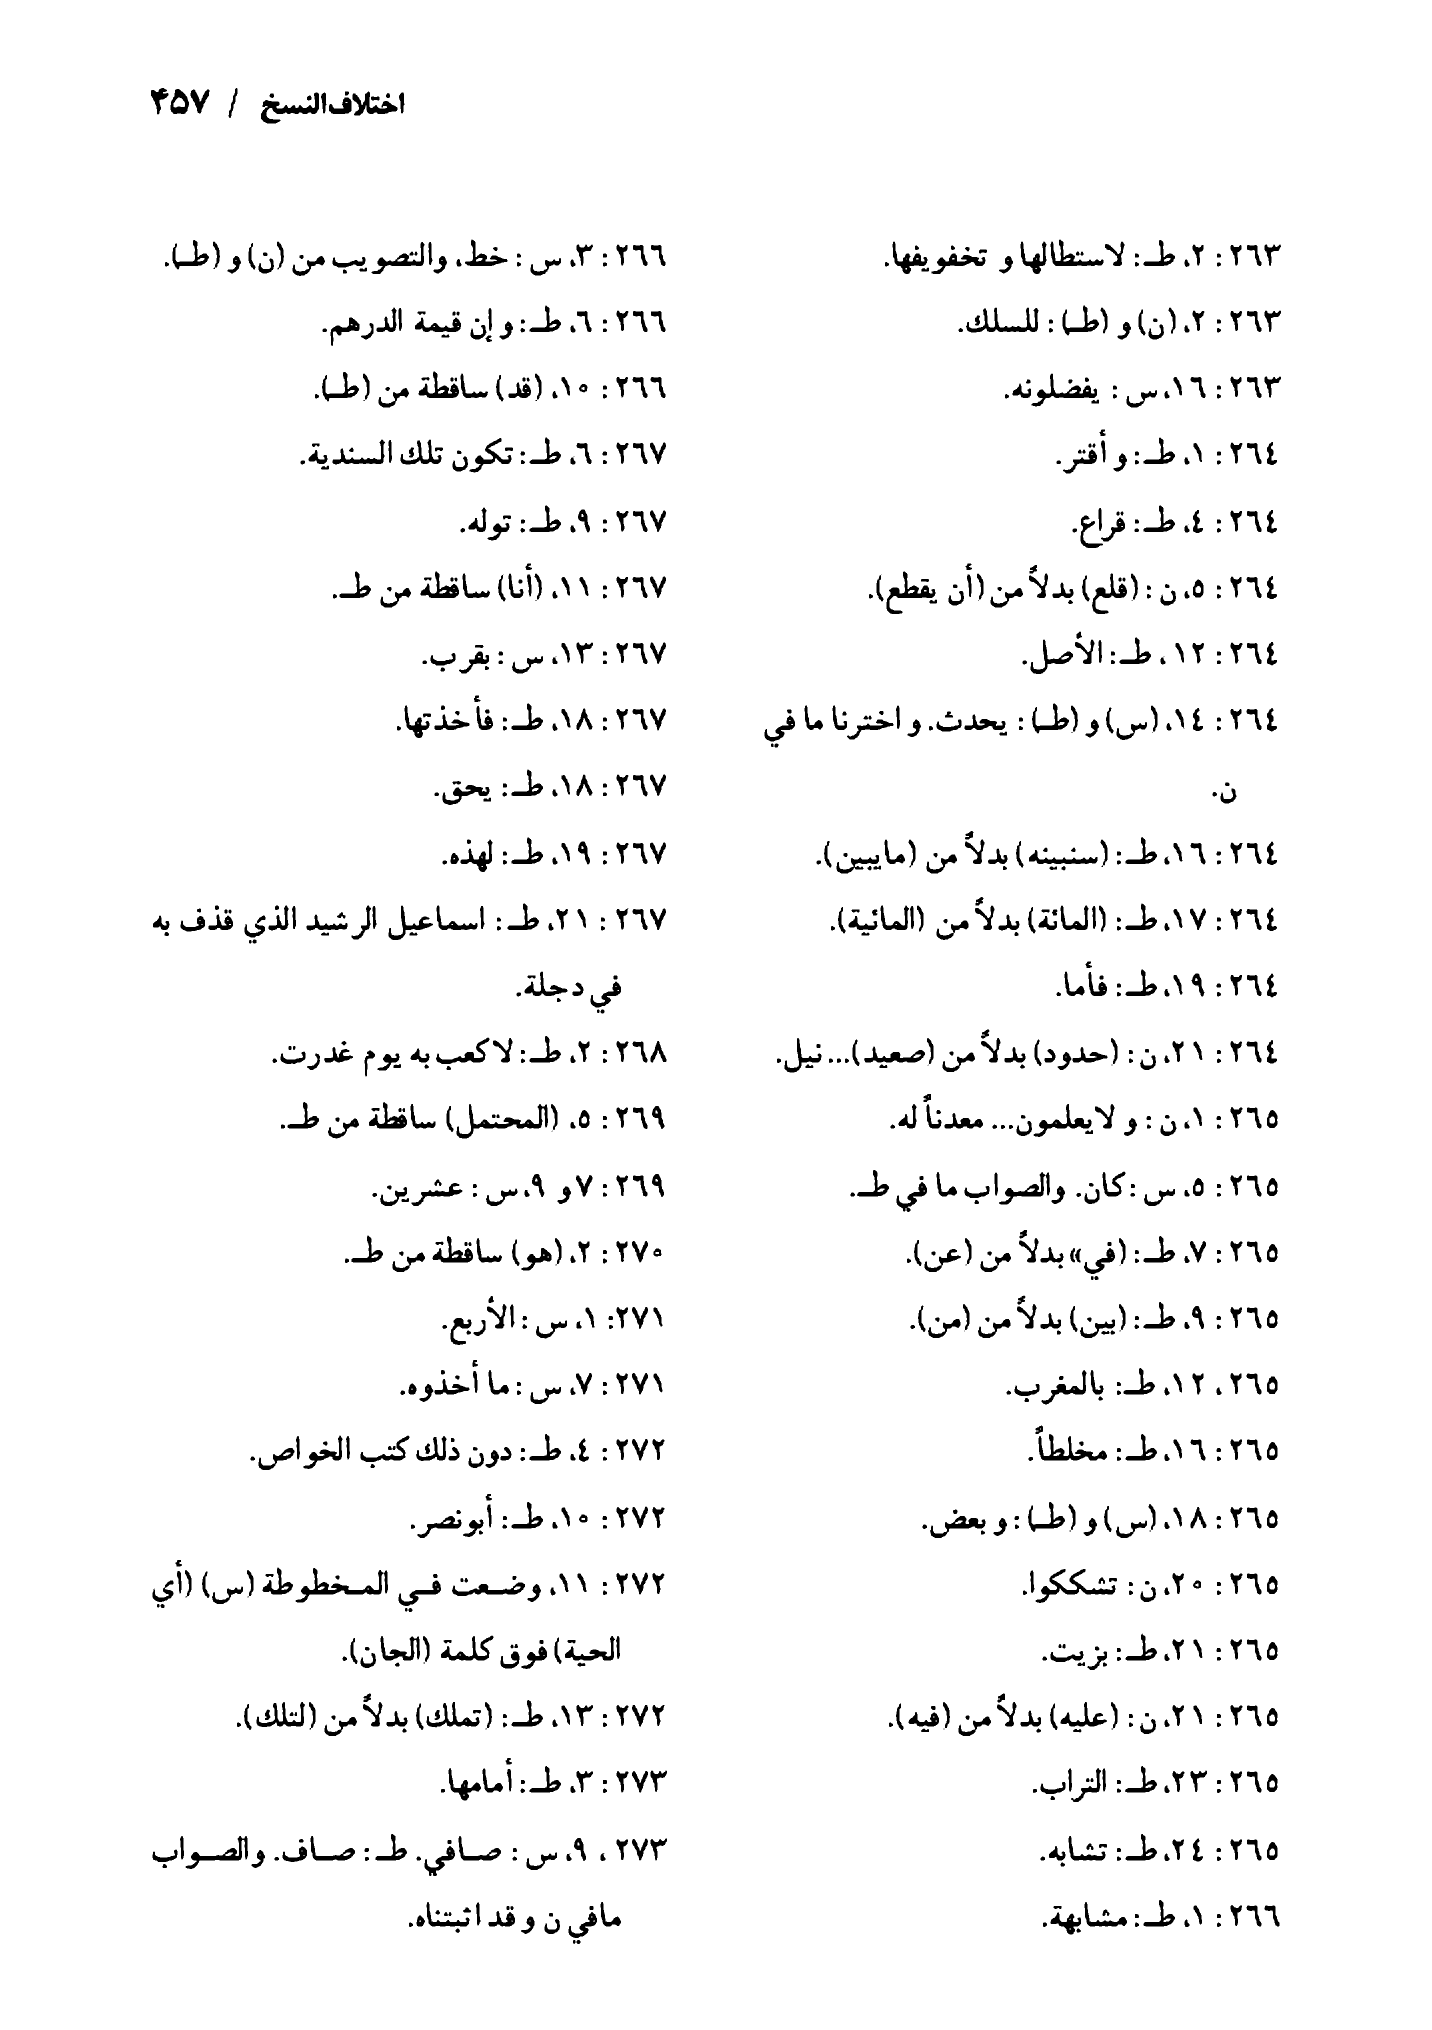 اختلاف النسخ / ۴۵۷
٢٦٣: ٢، طـ: لاستطالها و تخفويفها.
٢٦٣: ٢، (ن) و (طـ): للسلك.
٢٦٣: ١٦، س: يفضلونه.
٢٦٤: ١، طـ: و أقتر.
٢٦٤: ٤، طـ: قراع.
٢٦٤: ٥، ن: (قلع) بدلاً من (أن يقطع).
٢٦٤: ١٢، طـ: الأصل.
٢٦٤: ١٤، (س) و (طـ): يحدث. و اخترنا ما في
ن.
٢٦٤: ١٦، طـ: (سنبينه) بدلاً من (مايبين).
٢٦٤: ١٧، طـ: (المائة) بدلاً من (المائية).
٢٦٤: ١٩، طـ: فأما.
٢٦٤: ٢١، ن: (حدود) بدلاً من (صعيد)... نيل.
٢٦٥: ١، ن: و لايعلمون... معدناً له.
٢٦٥: ٥، س: كان. والصواب ما في طـ.
٢٦٥: ٧، طـ: (في» بدلاً من (عن).
٢٦٥: ٩، طـ: (بين) بدلاً من (من).
٢٦٥، ١٢، طـ: بالمغرب.
٢٦٥: ١٦، طـ: مخلطاً.
٢٦٥: ١٨، (س) و (طـ): و بعض.
٢٦٥: ٢٠، ن: تشككوا.
٢٦٥: ٢١، طـ: بزيت.
٢٦٥: ٢١، ن: (عليه) بدلاً من (فيه).
٢٦٥: ٢٣، طـ: التراب.
٢٦٥: ٢٤، طـ: تشابه.
٢٦٦: ١، طـ: مشابهة.
٢٦٦: ٣، س: خط، والتصويب من (ن) و (طـ).
٢٦٦: ٦، طـ: و إن قيمة الدرهم.
٢٦٦: ١٠، (قد) ساقطة من (طـ).
٢٦٧: ٦، طـ: تكون تلك السندية.
٢٦٧: ٩، طـ: توله.
٢٦٧: ١١، (أنا) ساقطة من طـ.
٢٦٧: ١٣، س: بقرب.
٢٦٧: ١٨، طـ: فأخذتها.
٢٦٧: ١٨، طـ: يحق.
٢٦٧: ١٩، طـ: لهذه.
٢٦٧: ٢١، طـ: اسماعيل الرشيد الذي قذف به
في دجلة.
٢٦٨: ٢، طـ: لاكعب به يوم غدرت.
٢٦٩: ٥، (المحتمل) ساقطة من طـ.
٢٦٩: ٧ و ٩، س: عشرين.
٢٧٠: ٢، (هو) ساقطة من طـ.
٢٧١: ١، س: الأربع.
٢٧١: ٧، س: ما أخذوه.
٢٧٢: ٤، طـ: دون ذلك كتب الخواص.
٢٧٢: ١٠، طـ: أبونصر.
٢٧٢: ١١، وضعت في المخطوطة (س) (أي
الحية) فوق كلمة (الجان).
٢٧٢: ١٣، طـ: (تملك) بدلاً من (لتلك).
٢٧٣: ٣، طـ: أمامها.
٢٧٣، ٩، س: صافي. طـ: صاف. والصواب
مافي ن و قد اثبتناه.